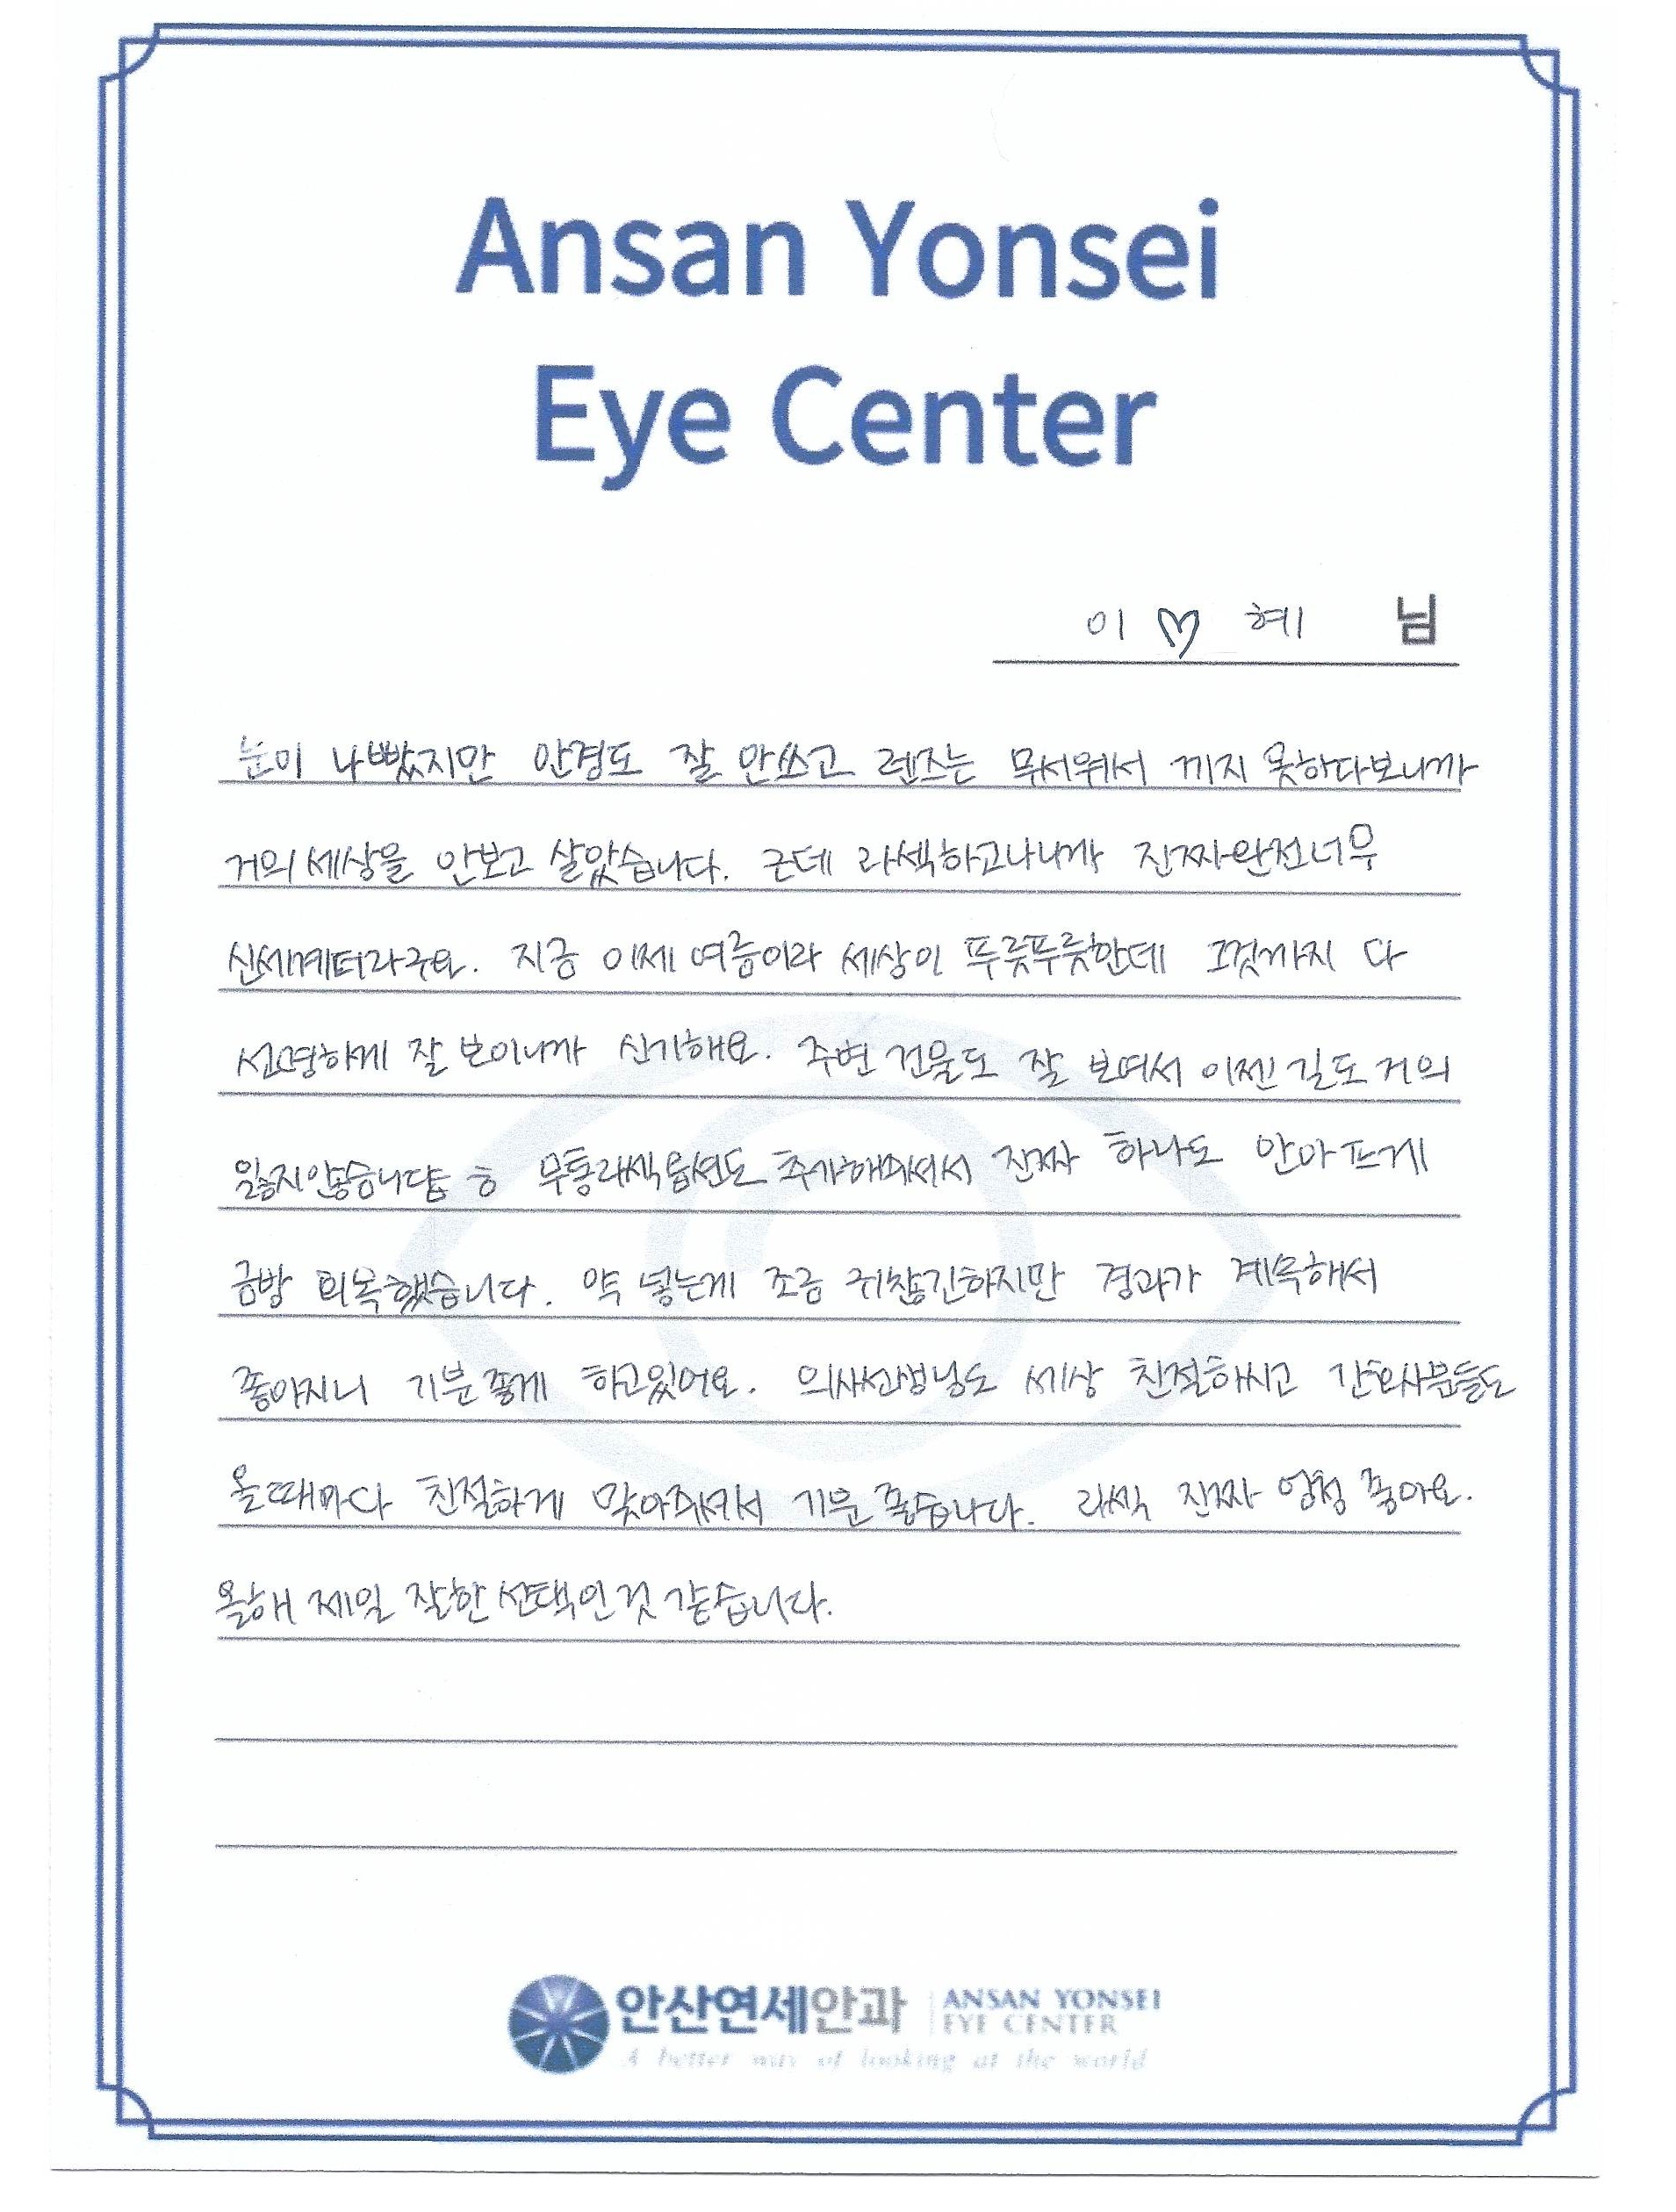 Ansan Yonsei
Eye Center
이 ♡ 혜 님
눈이 나빴지만 안경도 잘 안쓰고 렌즈는 무서워서 끼지 못하다보니까
거의 세상을 안보고 살았습니다. 근데 라섹하고나니까 진짜완전너무
신세계더라구요. 지금 이제 여름이라 세상이 푸릇푸릇한데 그것까지 다
선명하게 잘 보이니까 신기해요. 주변 건물도 잘 보여서 이젠 길도 거의
잃지않습니답 ㅎ 무통라섹옵션도 추가해주셔서 진짜 하나도 안아프게
금방 회복했습니다. 약 넣는게 조금 귀찮긴하지만 경과가 계속해서
좋아지니 기분좋게 하고있어요. 의사선생님도 세상 친절하시고 간호사분들도
올때마다 친절하게 맞아주셔서 기분좋습니다. 라섹 진짜 엄청 좋아요.
올해 제일 잘한 선택인것 같습니다.
안산연세안과 ANSAN YONSEI
EYE CENTER
A better way of looking at the world